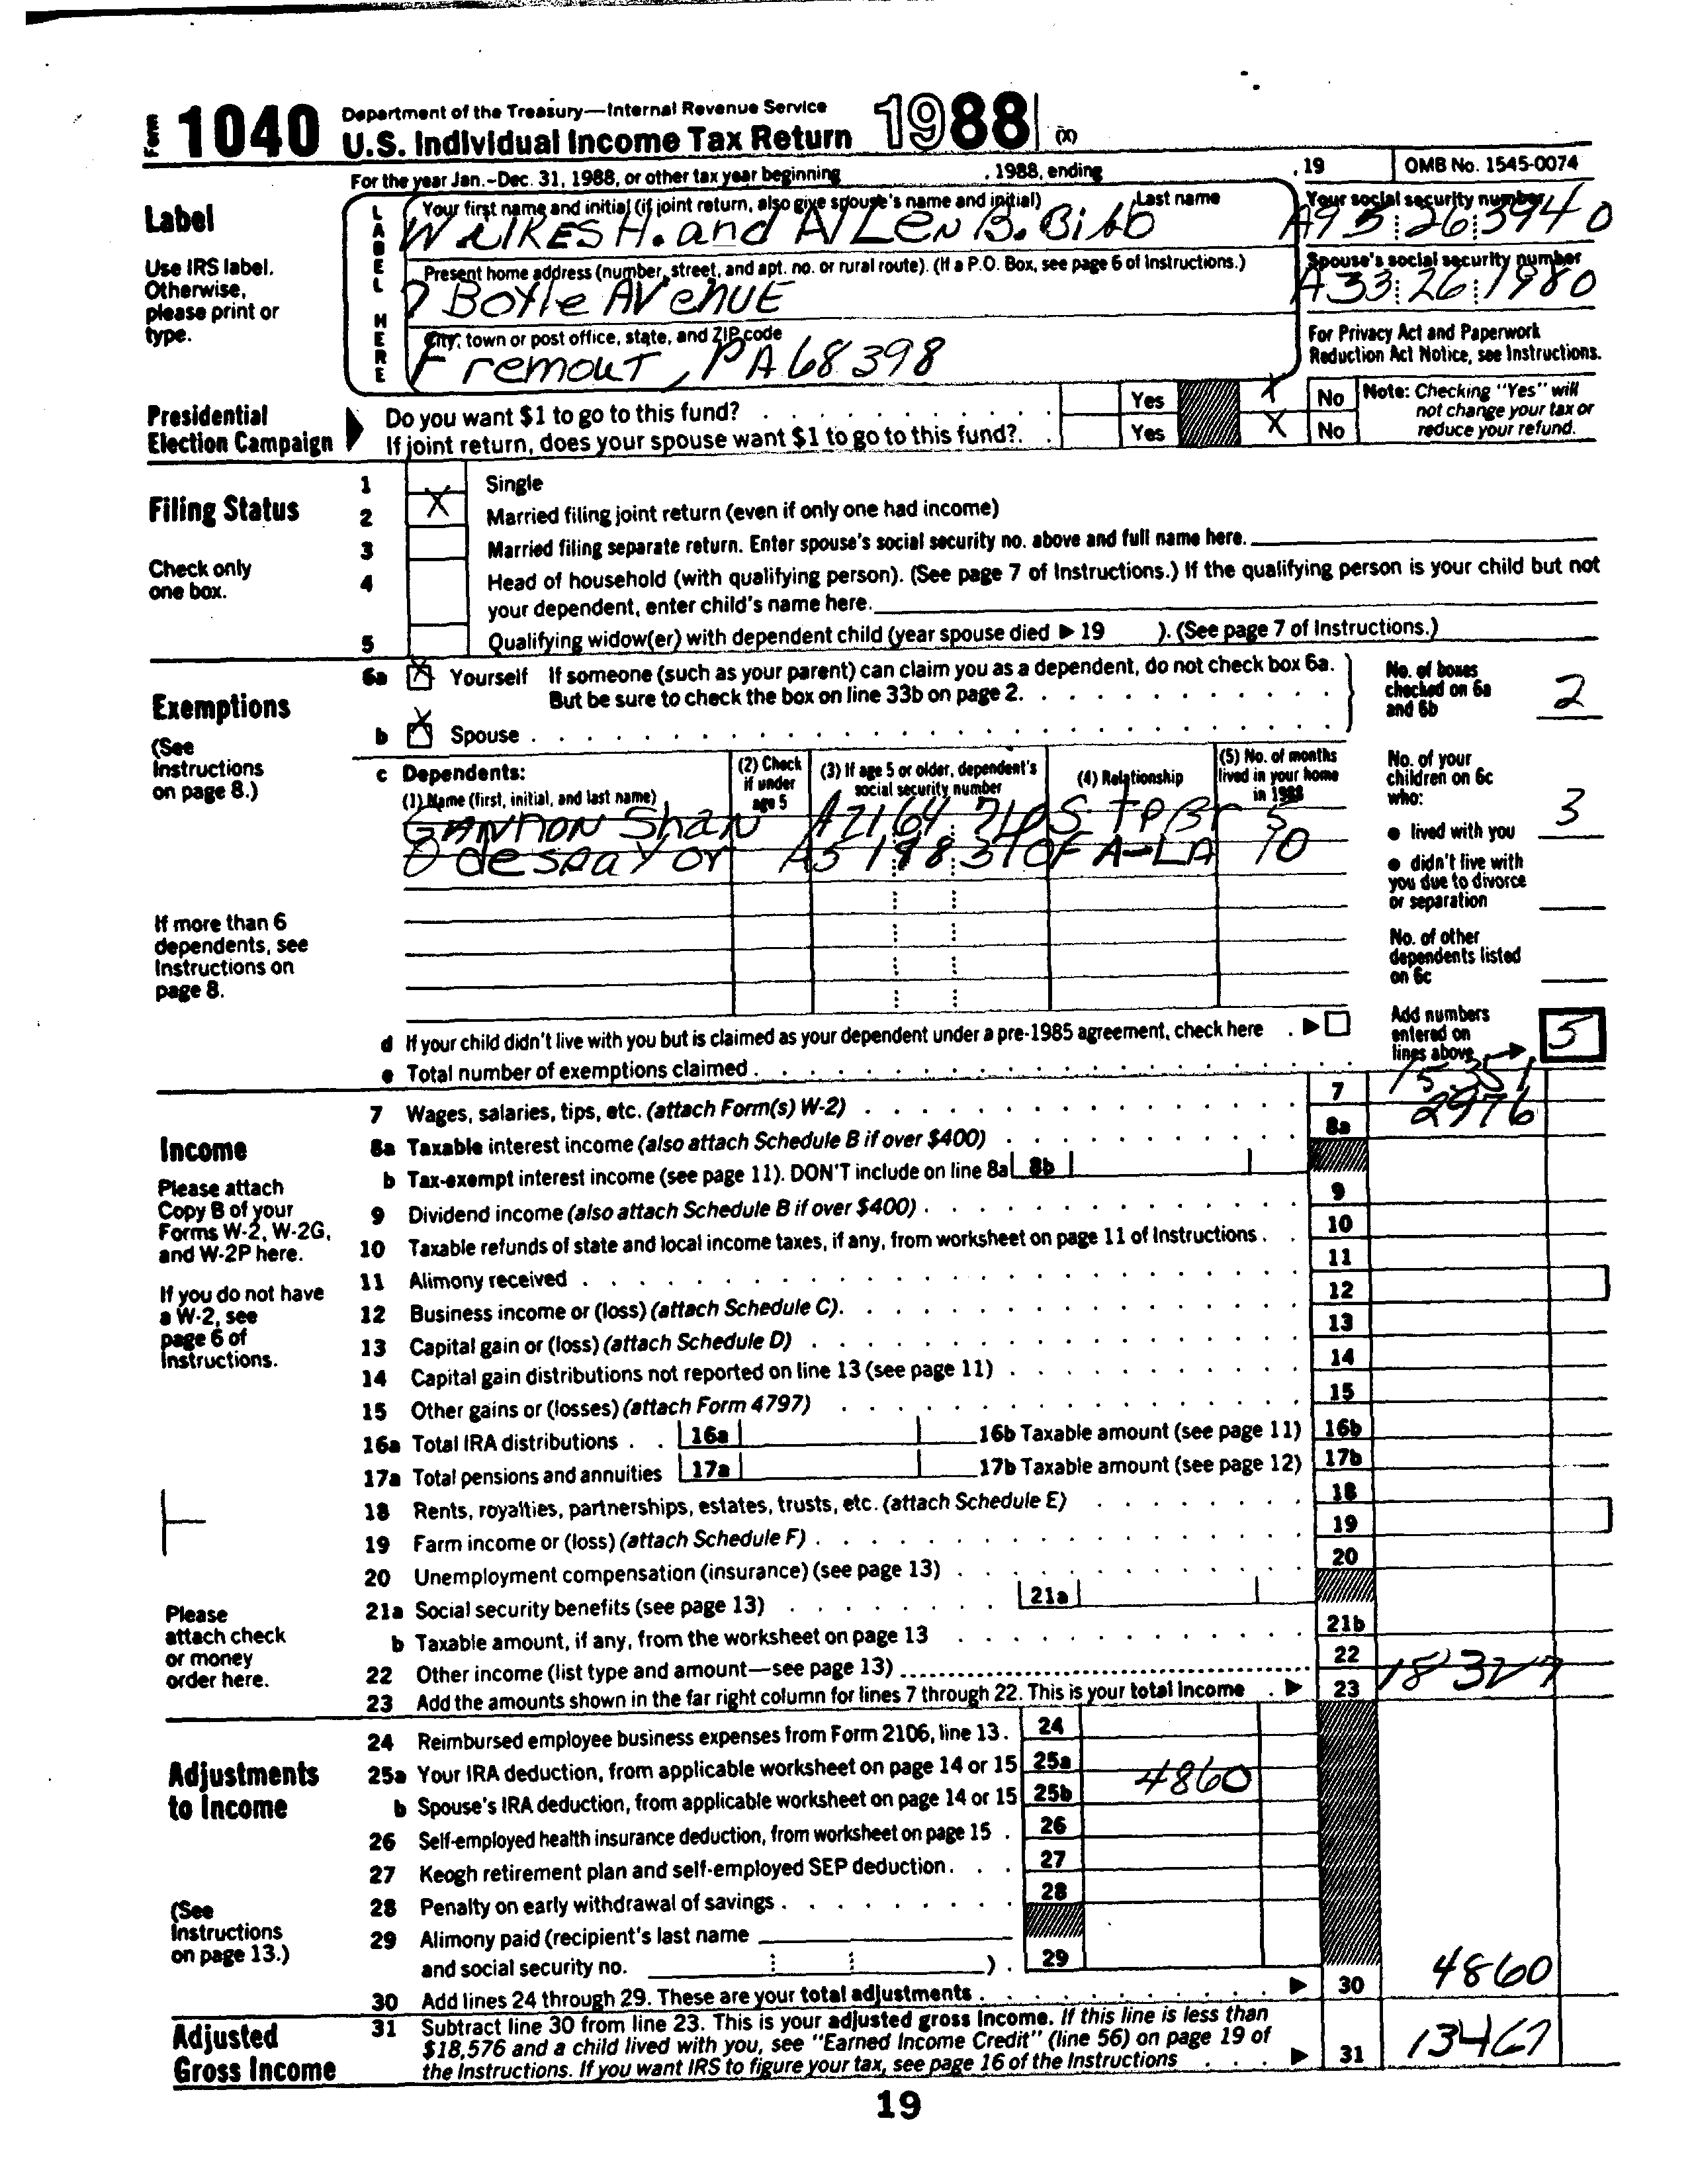 Form 1040 Department of the Treasury—Internal Revenue Service
U.S. Individual Income Tax Return 1988 (X)
For the year Jan.-Dec. 31, 1988, or other tax year beginning , 1988, ending , 19 OMB No. 1545-0074
Label
Use IRS label.
Otherwise,
please print or
type.
LABEL HERE
Your first name and initial (if joint return, also give spouse's name and initial) Last name
WilKES H. and AlLeN B. Bibb
Your social security number
A95 26 3940
Present home address (number, street, and apt. no. or rural route). (If a P.O. Box, see page 6 of Instructions.)
7 Boyle AVenUE
Spouse's social security number
A33 26 1980
City, town or post office, state, and ZIP code
FremouT, PA 68398
For Privacy Act and Paperwork
Reduction Act Notice, see Instructions.
Presidential
Election Campaign
Do you want $1 to go to this fund? Yes X No
If joint return, does your spouse want $1 to go to this fund? Yes X No
Note: Checking "Yes" will
not change your tax or
reduce your refund.
Filing Status
Check only
one box.
1 Single
2 X Married filing joint return (even if only one had income)
3 Married filing separate return. Enter spouse's social security no. above and full name here.
4 Head of household (with qualifying person). (See page 7 of Instructions.) If the qualifying person is your child but not
your dependent, enter child's name here.
5 Qualifying widow(er) with dependent child (year spouse died ▶ 19 ). (See page 7 of Instructions.)
Exemptions
(See
Instructions
on page 8.)
6a X Yourself If someone (such as your parent) can claim you as a dependent, do not check box 6a.
But be sure to check the box on line 33b on page 2.
b X Spouse
No. of boxes
checked on 6a
and 6b 2
c Dependents:
(1) Name (first, initial, and last name)
(2) Check
if under
age 5
(3) If age 5 or older, dependent's
social security number
(4) Relationship
(5) No. of months
lived in your home
in 1988
GANNON Shan A21 64 S TPBr 5
Odessa Yor A5 1 98 FA-LA 10
If more than 6
dependents, see
Instructions on
page 8.
No. of your
children on 6c
who:
● lived with you 3
● didn't live with
you due to divorce
or separation
No. of other
dependents listed
on 6c
d If your child didn't live with you but is claimed as your dependent under a pre-1985 agreement, check here ▶
e Total number of exemptions claimed
Add numbers
entered on
lines above 5
Income
Please attach
Copy B of your
Forms W-2, W-2G,
and W-2P here.
If you do not have
a W-2, see
page 6 of
Instructions.
Please
attach check
or money
order here.
7 Wages, salaries, tips, etc. (attach Form(s) W-2) 7 15 351
8a Taxable interest income (also attach Schedule B if over $400) 8a 2976
b Tax-exempt interest income (see page 11). DON'T include on line 8a 8b
9 Dividend income (also attach Schedule B if over $400) 9
10 Taxable refunds of state and local income taxes, if any, from worksheet on page 11 of Instructions 10
11 Alimony received 11
12 Business income or (loss) (attach Schedule C) 12
13 Capital gain or (loss) (attach Schedule D) 13
14 Capital gain distributions not reported on line 13 (see page 11) 14
15 Other gains or (losses) (attach Form 4797) 15
16a Total IRA distributions 16a 16b Taxable amount (see page 11) 16b
17a Total pensions and annuities 17a 17b Taxable amount (see page 12) 17b
18 Rents, royalties, partnerships, estates, trusts, etc. (attach Schedule E) 18
19 Farm income or (loss) (attach Schedule F) 19
20 Unemployment compensation (insurance) (see page 13) 20
21a Social security benefits (see page 13) 21a
b Taxable amount, if any, from the worksheet on page 13 21b
22 Other income (list type and amount—see page 13) 22
23 Add the amounts shown in the far right column for lines 7 through 22. This is your total income ▶ 23 18 327
Adjustments
to Income
(See
Instructions
on page 13.)
24 Reimbursed employee business expenses from Form 2106, line 13 24
25a Your IRA deduction, from applicable worksheet on page 14 or 15 25a 4860
b Spouse's IRA deduction, from applicable worksheet on page 14 or 15 25b
26 Self-employed health insurance deduction, from worksheet on page 15 26
27 Keogh retirement plan and self-employed SEP deduction 27
28 Penalty on early withdrawal of savings 28
29 Alimony paid (recipient's last name
and social security no. ) 29
30 Add lines 24 through 29. These are your total adjustments ▶ 30 4860
Adjusted
Gross Income
31 Subtract line 30 from line 23. This is your adjusted gross income. If this line is less than
$18,576 and a child lived with you, see "Earned Income Credit" (line 56) on page 19 of
the Instructions. If you want IRS to figure your tax, see page 16 of the Instructions ▶ 31 13467
19